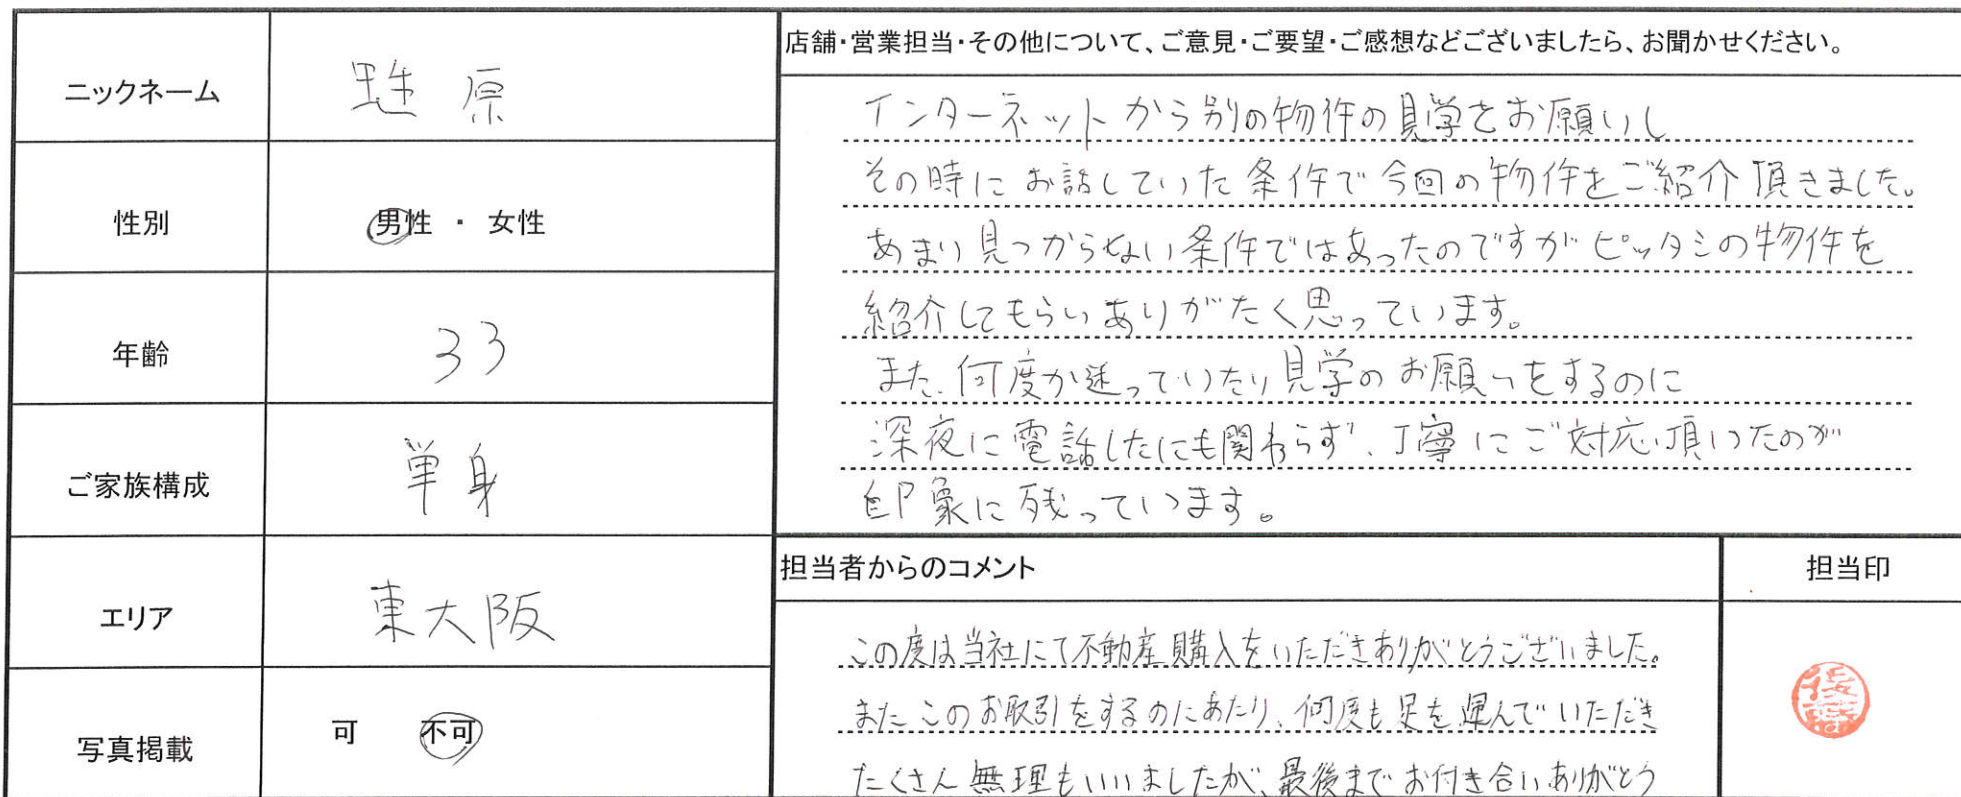 ニックネーム
蛯原
性別
男性 ・ 女性
年齢
33
ご家族構成
単身
エリア
東大阪
写真掲載
可 不可
店舗・営業担当・その他について、ご意見・ご要望・ご感想などございましたら、お聞かせください。
インターネットから別の物件の見学をお願いし
その時にお話していた条件で今回の物件をご紹介頂きました。
あまり見つからない条件ではあったのですがピッタシの物件を
紹介してもらいありがたく思っています。
また、何度か迷っていたり見学のお願いをするのに
深夜に電話したにも関わらず、丁寧にご対応頂いたのが
印象に残っています。
担当者からのコメント
担当印
この度は当社にて不動産購入をいただきありがとうございました。
またこのお取引をするのにあたり、何度も足を運んでいただき
たくさん無理もいいましたが、最後までお付き合いありがとう